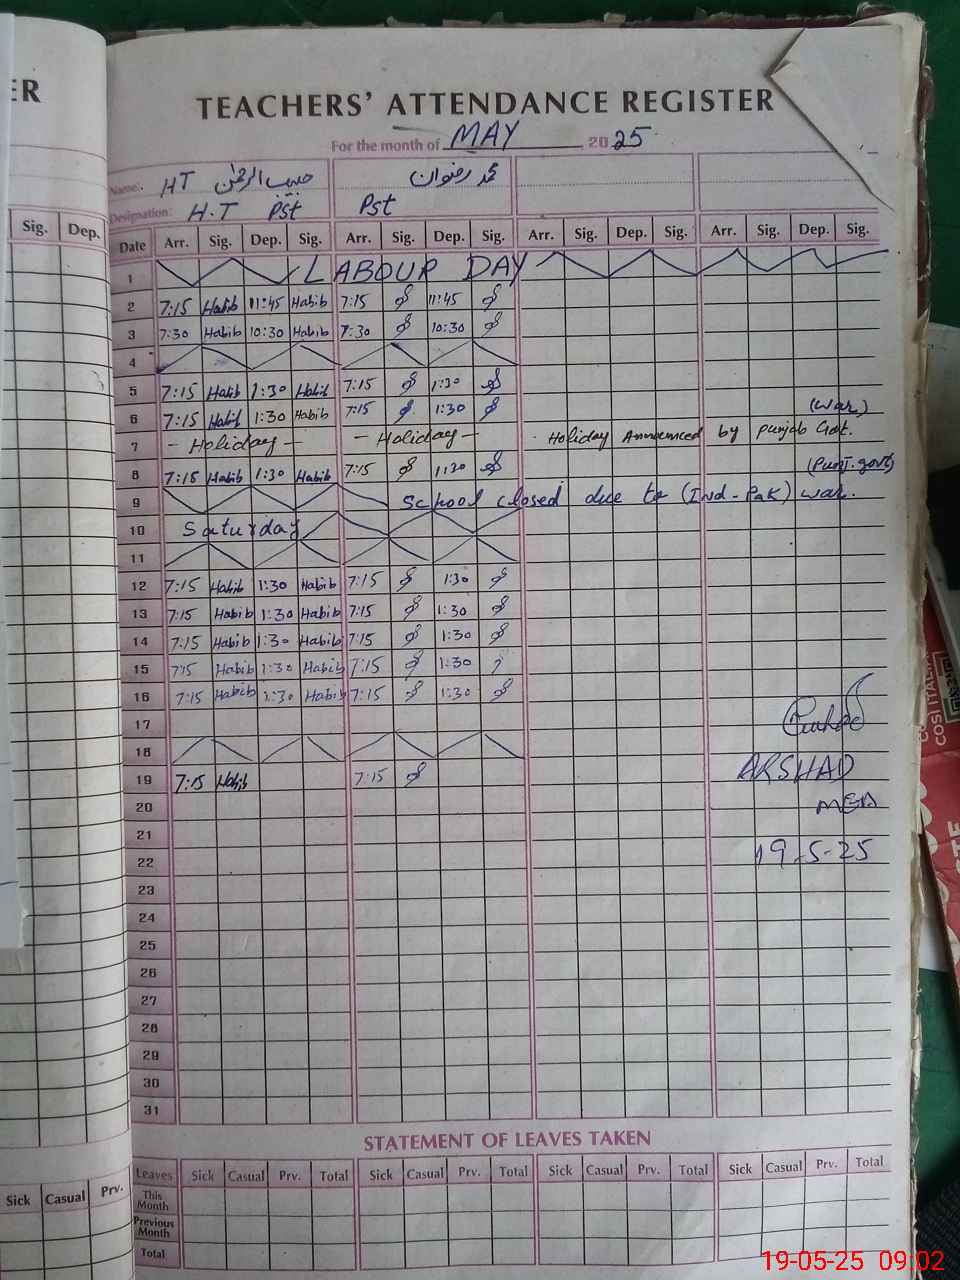 ER
TEACHERS' ATTENDANCE REGISTER
For the month of MAY 2025
Name:- HT حبیب الرحمٰن محمد رضوان
Designation: H.T Pst Pst
Sig. Dep.
Date Arr. Sig. Dep. Sig. Arr. Sig. Dep. Sig. Arr. Sig. Dep. Sig. Arr. Sig. Dep. Sig.
1 LABOUR DAY
2 7:15 Habib 11:45 Habib 7:15 11:45
3 7:30 Habib 10:30 Habib 7:30 10:30
4
5 7:15 Habib 1:30 Habib 7:15 1:30
6 7:15 Habib 1:30 Habib 7:15 1:30 (war)
7 - Holiday - - Holiday - Holiday Announced by Punjab Govt.
8 7:15 Habib 1:30 Habib 7:15 1:30 (Punj. govt)
9 School closed due to (Ind-Pak) war.
10 Saturday
11
12 7:15 Habib 1:30 Habib 7:15 1:30
13 7:15 Habib 1:30 Habib 7:15 1:30
14 7:15 Habib 1:30 Habib 7:15 1:30
15 7:15 Habib 1:30 Habib 7:15 1:30
16 7:15 Habib 1:30 Habib 7:15 1:30
17
18
19 7:15 Habib 7:15 ARSHAD
20 MEA
21
22 19-5-25
23
24
25
26
27
28
29
30
31
STATEMENT OF LEAVES TAKEN
Leaves Sick Casual Prv. Total Sick Casual Prv. Total Sick Casual Prv. Total Sick Casual Prv. Total
Sick Casual Prv.
This Month
Previous Month
Total
19-05-25 09:02